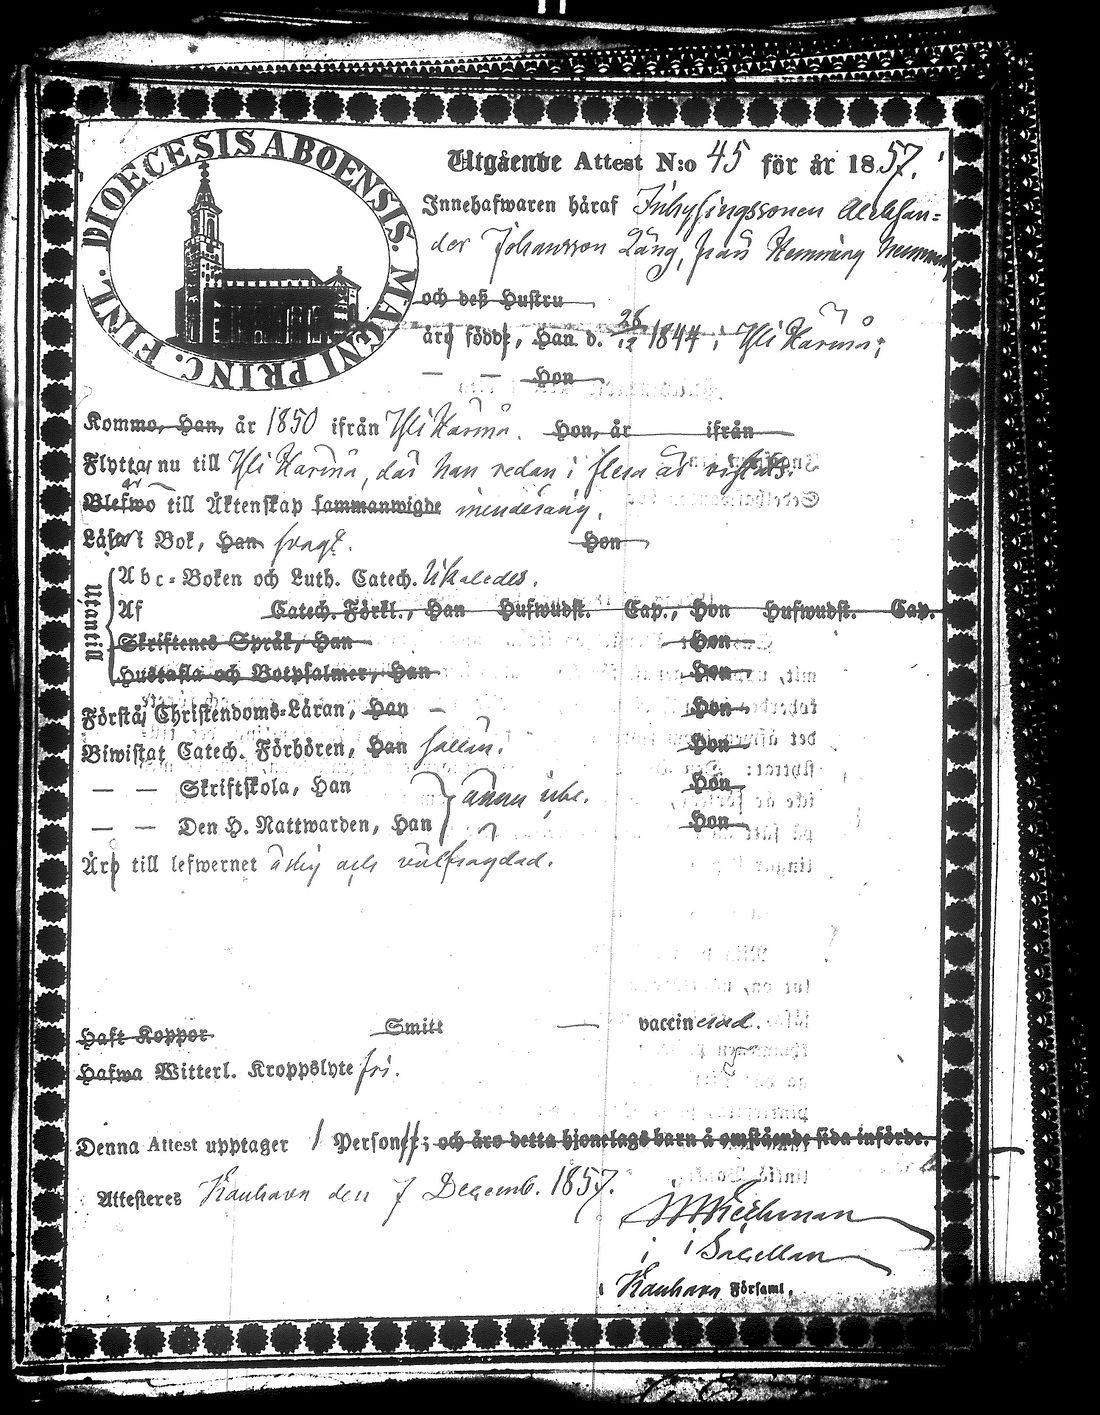 DIOECESIS ABOENSIS. MAGNI PRINC. FINL.
Utgående Attest N:o 45 för år 1857.
Innehafwaren häraf Inhysingssonen Aleksan=
der Johansson Lång, från Hemming
och deß Hustru
äro födde, Han d. 26/12 1844 i Ylikärmä;
— — Hon
Kommo, Han, år 1850 ifrån Ylikärmä. Hon, år ifrån
Flytta nu till Ylikärmä, där han redan i flera år vistats.
är
Blefwo till Äktenskap sammanwigde minderårig.
Läsa i Bok, Han svagt. Hon
Utantill
Abc-Boken och Luth. Catech. likaledes.
Af Catech. Förkl., Han Hufwudst. Cap., Hon Hufwudst. Cap.
Skriftenes Språk, Han Hon
Hustafla och Botpsalmer, Han Hon
Förstå Christendoms-Läran, Han — Hon
Biwistat Catech. Förhören, Han sällan. Hon
— — Skriftskola, Han Hon
ännu icke.
— — Den H. Nattwarden, Han Hon
Äro till lefwernet ärlig och välfrägdad.
Haft Koppor Smitt — vaccinerad.
Hafwa Witterl. Kroppslyte fri.
Denna Attest upptager 1 Personer; och äro detta hjonelags barn å omstående sida införde.
Attesteres Kauhava den 7 Decemb. 1857.
i Kauhava Församl.